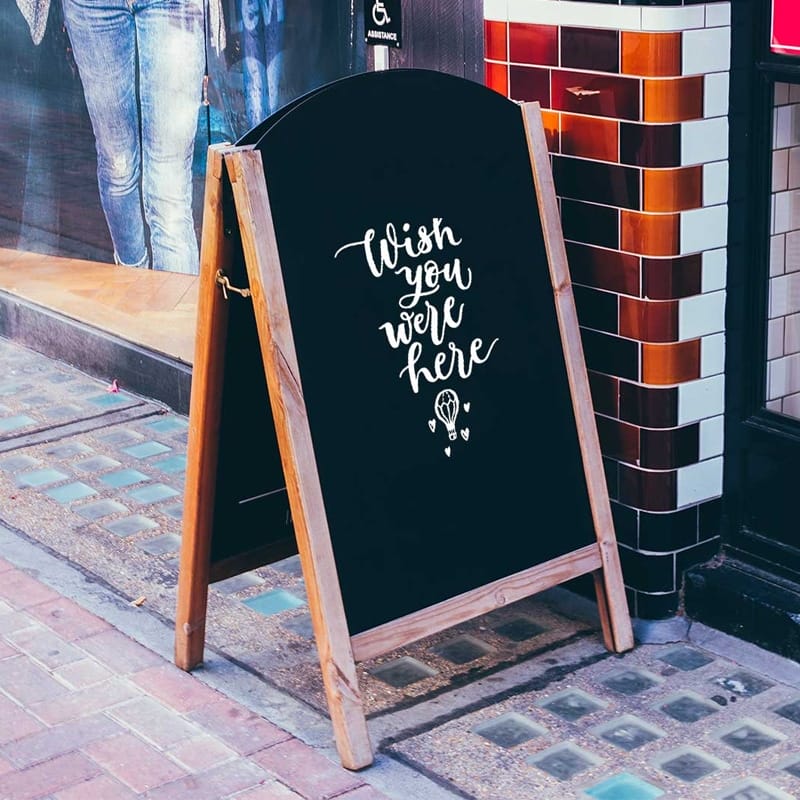 ASSISTANCE
Wish
you
were
here